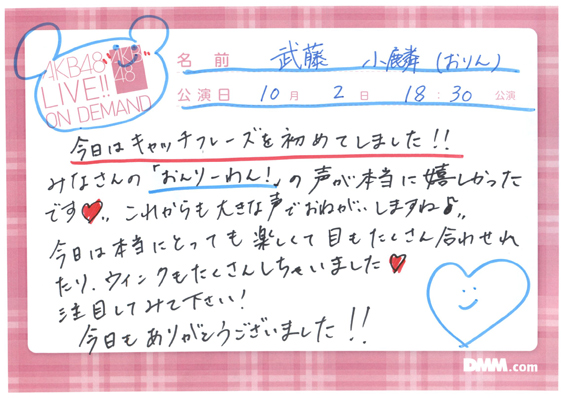 AKB48
LIVE!!
ON DEMAND
AKB
48
名前 武藤 小麟(おりん)
公演日 10月 2日 18:30 公演
今日はキャッチフレーズを初めてしました!!
みなさんの「おんりーわん!」の声が本当に嬉しかった
です♥ これからも大きな声でおねがいしますね♪
今日は本当にとっても楽しくて目もたくさん合わせれ
たり、ウィンクもたくさんしちゃいました♥
注目してみて下さい!
今日もありがとうございました!!
DMM.com